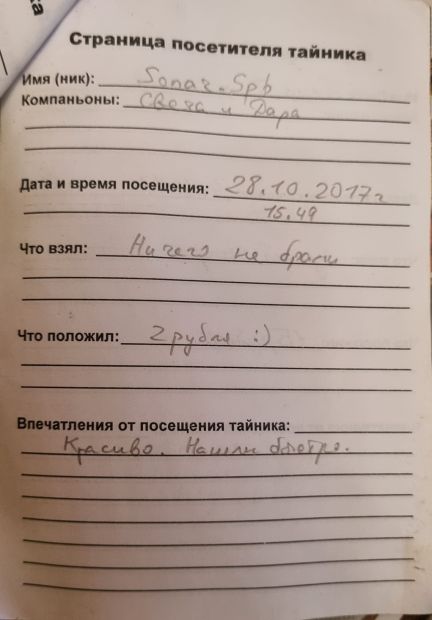 ка
Страница посетителя тайника
Имя (ник): Sonar_Spb
Компаньоны: Свеча и Дара
Дата и время посещения: 28.10.2017г
15.49
Что взял: Ничего не брали
Что положил: 2 рубля :)
Впечатления от посещения тайника:
Красиво. Нашли быстро.